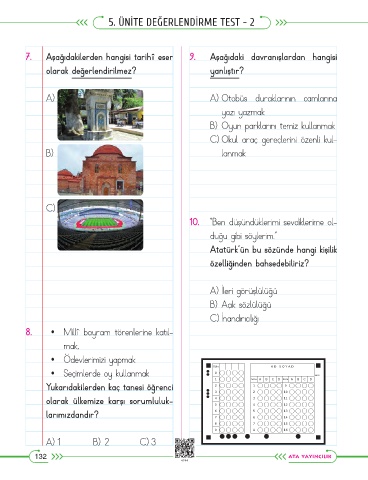 5. ÜNİTE DEĞERLENDİRME TEST - 2
7. Aşağıdakilerden hangisi tarihî eser
olarak değerlendirilmez?
A)
B)
C)
8. • Millî bayram törenlerine katıl-
mak,
• Ödevlerimizi yapmak
• Seçimlerde oy kullanmak
Yukarıdakilerden kaç tanesi öğrenci
olarak ülkemize karşı sorumluluk-
larımızdandır?
A) 1 B) 2 C) 3
9. Aşağıdaki davranışlardan hangisi
yanlıştır?
A) Otobüs duraklarının camlarına
yazı yazmak
B) Oyun parklarını temiz kullanmak
C) Okul araç gereçlerini özenli kul-
lanmak
10. "Ben düşündüklerimi sevdiklerime ol-
duğu gibi söylerim."
Atatürk'ün bu sözünde hangi kişilik
özelliğinden bahsedebiliriz?
A) İleri görüşlülüğü
B) Açık sözlülüğü
C) İnandırıcılığı
132
ATA YAYINCILIK